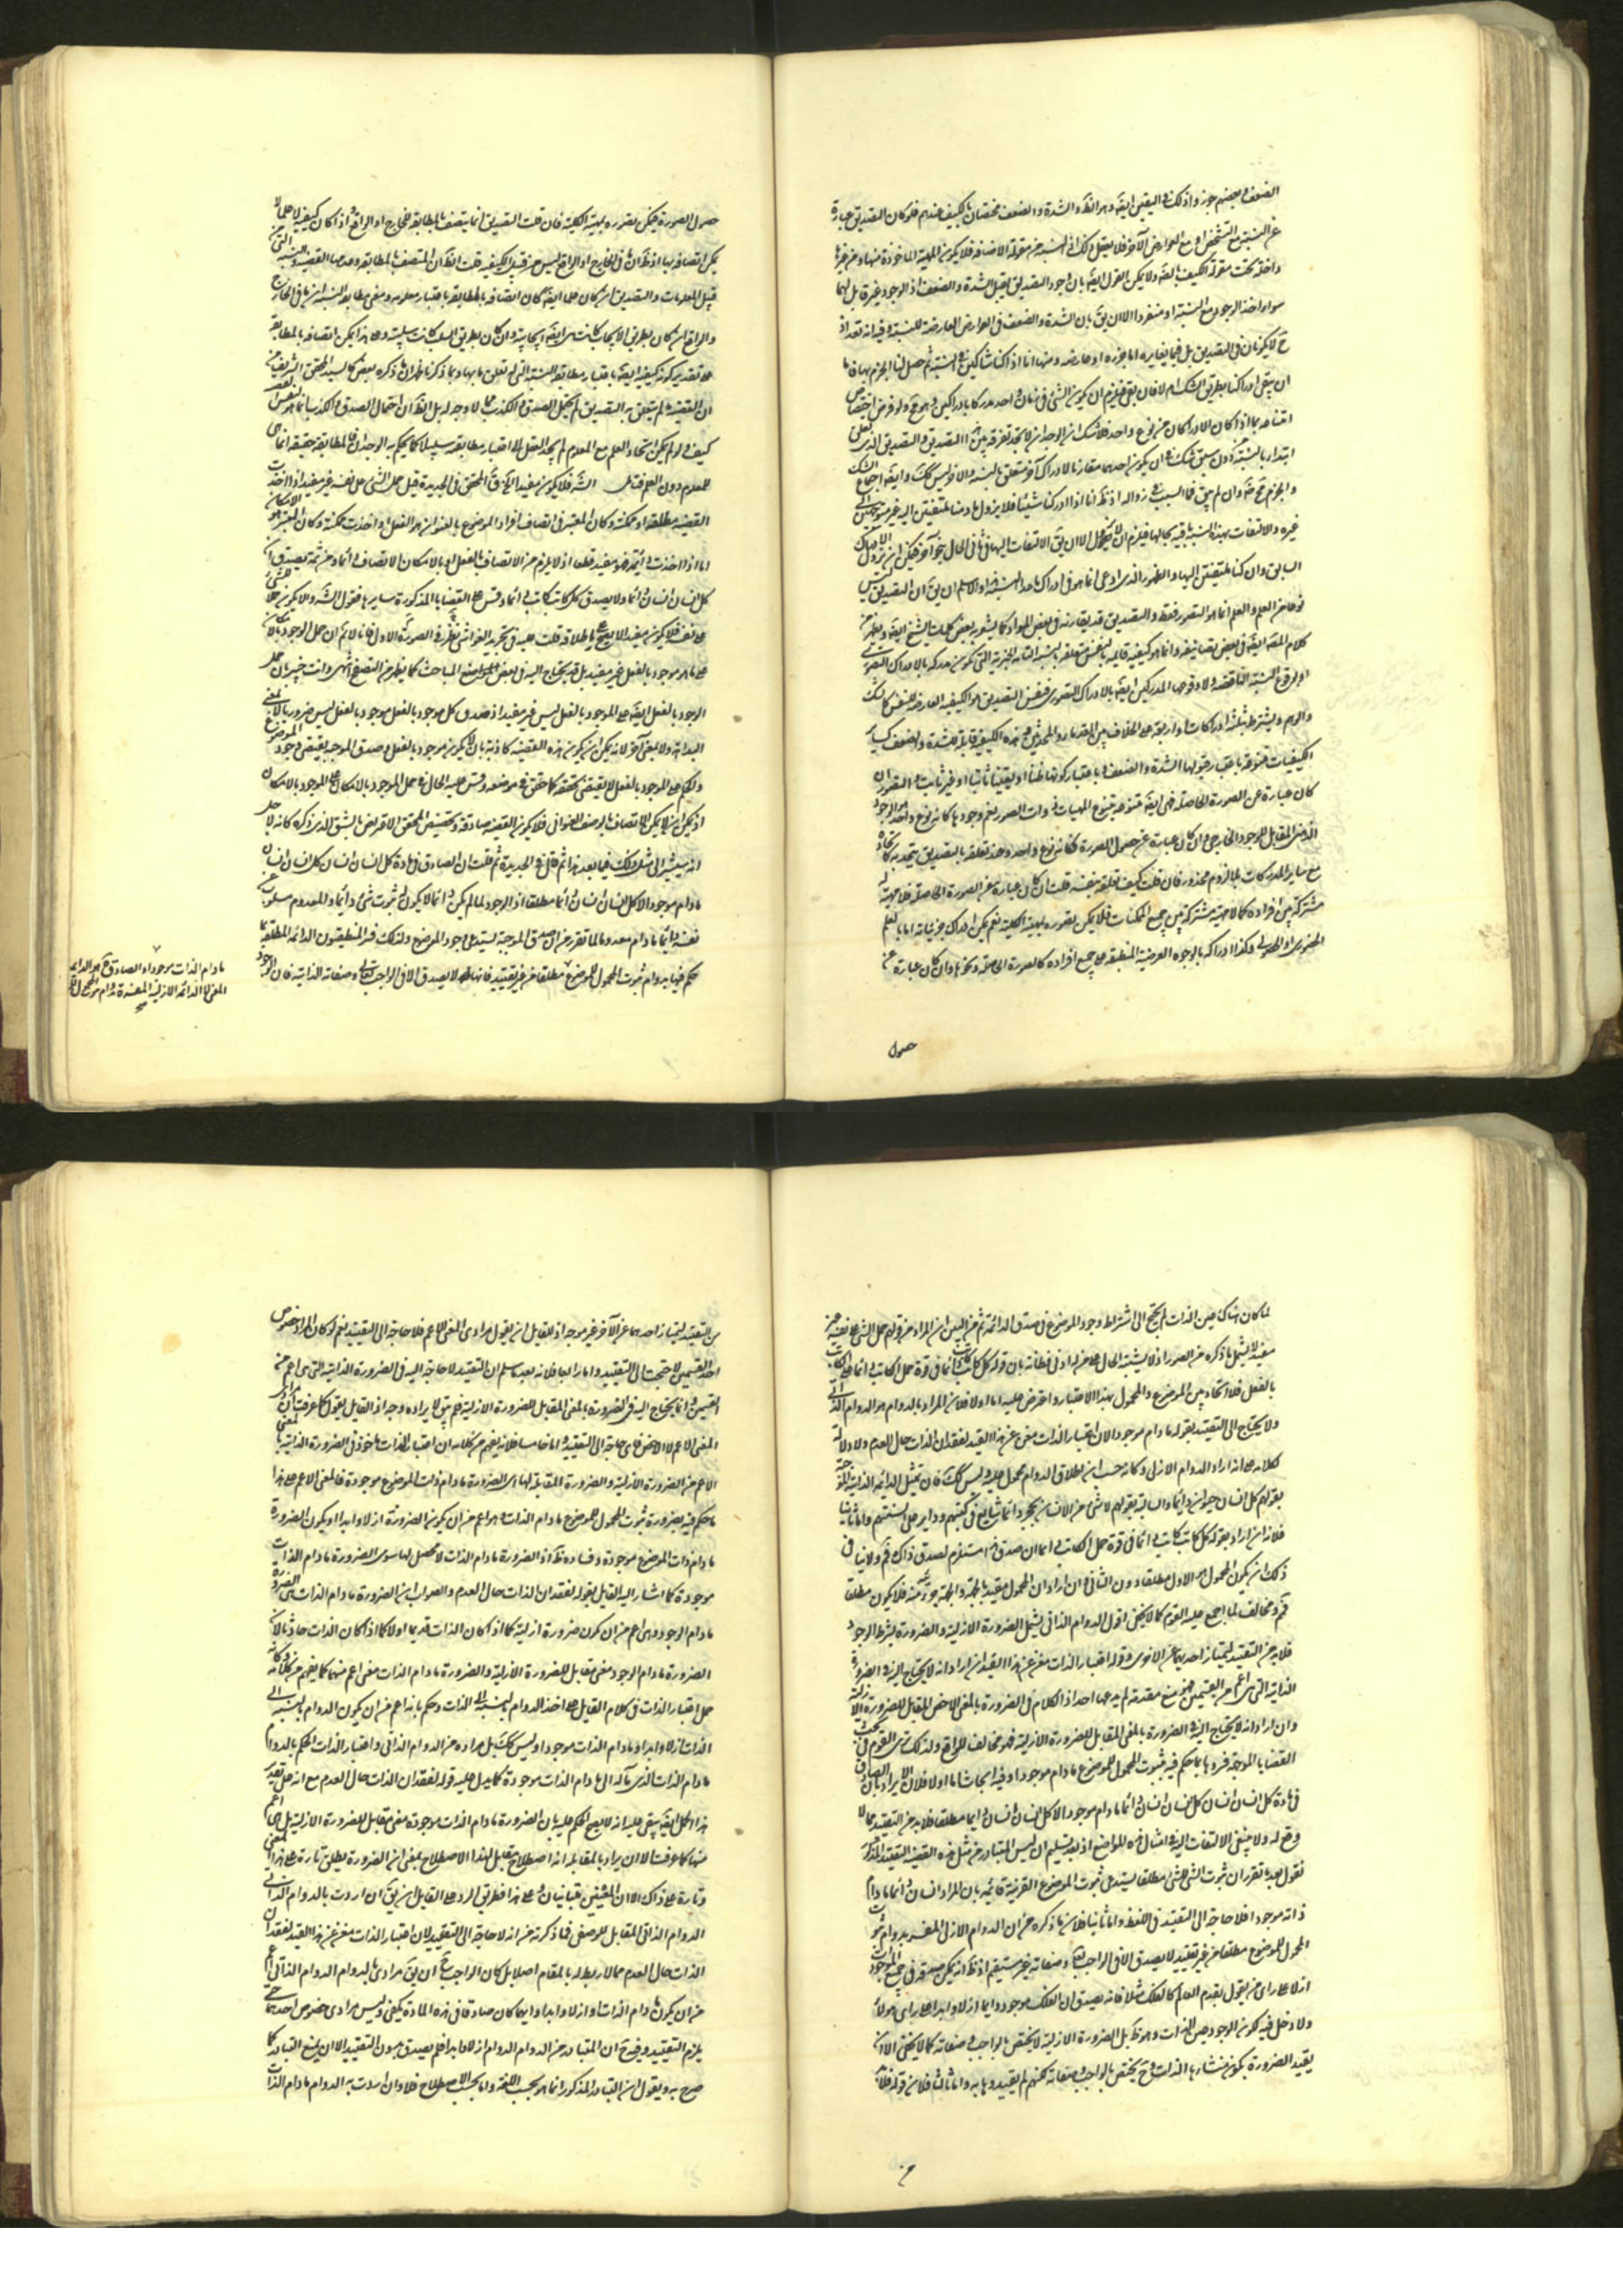 الضعف في بعضهم جوزوا ذلك في اليقين ايضا وهو الظ والشدة والضعف مختصان بالكيف عندهم فلو كان التصديق عبارة
عن النسبة مع التشخص او مع العوارض الآخر فلا يعقل ذلك اذ النسبة من مقولة الاضافة فلا يكون المهية الماخوذة منها ومن غيرها
داخلة تحت مقولة الكيف بالضرورة ولا يمكن القول ايضا بان وجود التصديق يقبل الشدة والضعف اذ الوجود غير قابل لهما
سواء اخذ الوجود مع النسبة او منفردا الا ان يق بان الشدة والضعف في العوارض العارضة للنسبة وفيه انه تعد اذ
ح لا يكونان في التصديق بل فيما يغايره اما جزؤه او عارضه ومنها انا اذا كنا شاكين في النسبة ثم حصل لنا الجزم بها فاما
ان يبقى ادراكنا بطريق الشك ام لا فان بقي فيلزم ان يكون الشئ في زمان واحد مدركا بادراكين وهو مح ولو فرض اختصاص
امتناعه بما اذا كان الادراكان من نوع واحد فلا شك ان الوجدان لا يجد تفرقة بين التصديق والتصديق الذي تعلق
ابتداء بالنسبة من دون سبق شك في ان يكون احدهما مقارنا لادراك آخر متعلق بالنسبة والآخر ليس كك وايضا اجتماع الشك
والجزم مح وان لم يبق فما السبب في زواله اذ ظ انا اذا ادركنا شيئا فلا يزول ما دمنا ملتفتين اليه غير متوجهين الى
غيره والالتفات بهذه النسبة باقية بحالها فيلزم ان لا يزول الا ان يق الالتفات اليها في ثاني الحال بنحو آخر فيمكن ان يزول الادراك
السابق وان كنا ملتفتين اليها والظهور الذي ادعى انما هو في ادراك ما عدا النسبة والاسلم ان يق ان التصديق ليس
نوعا من العلم والعلم انما هو التصور فقط والتصديق قد يقارنه في بعض المواد كما يشعر بعض كلمات الشيخ ايضا ويظهر من
كلام المص ايضا في بعض تصانيفه وانما هو كيفية قائمة بالنفس متعلقة بالنسبة التامة الخبرية التي تكون مدركة بالادراك التصوري
او لوقوع النسبة الناقصة ولا وقوعها المدركين ايضا بالادراك التصوري فنفس التصديق هو الكيفية العارضة للنفس كالشك
والوهم ويشترط بثلثة ادراكات او اربعة على الخلاف بين القدماء والمحدثين وهذه الكيفية قابلة للشدة والضعف كساير
الكيفيات متنوعة باعتبار قبولها الشدة والضعف وباعتبار كونها ظنا او يقينا ثابتا او غير ثابت والتصور ان
كان عبارة عن الصورة الحاصلة فهي ايضا متنوعة بتنوع المهيات ذوات الصور نعم وجودها كانه نوع واحد من الوجود
الذهني المقابل للوجود الخارجي وان كان عبارة عن حصول الصورة فكانه نوع واحد وعند تعلقه بالتصديق يتحد به كاتحاده
مع ساير المدركات بلا لزوم محذور فان قلت كيف تعلقه بنفسه قلت ان كان عبارة عن الصورة الحاصلة فلا مهية له
مشتركة بين افراده كما لا مهية مشتركة بين جميع الممكنات فلا يمكن تصوره بمهيته الكلية نعم يمكن ادراك جزئياته اما بالعلم
الحضوري او الحصولي وكذا ادراكه بالوجوه العرضية المنطبقة على جميع افراده كالصورة الحاصلة ونحوها وان كان عبارة عن
حصول
حصول الصورة فيمكن تصوره بمهيته الكلية فان قلت التصديق انما يتصف بالمطابقة للخارج او الواقع واذا كان كيفية لا علما لا
يمكن اتصافه بها اذ ظ ان ما في الخارج او الواقع ليس من قبيل الكيفية قلت الظ ان المتصف بالمطابقة وعدمها القضية والنسبة التي من
قبيل المعلومات والتصديق ان كان علما ايضا كان اتصافه بالمطابقة باعتبار معلومه ومعنى مطابقة النسبة انها في الخارج
والواقع ان كان بطريق الايجاب كانت هي ايضا ايجابية وان كان بطريق السلب كانت سلبية وعلى هذا يمكن اتصافه بالمطابقة
على تقدير كونه كيفية ايضا باعتبار مطابقة النسبة التي له تعلق ما بها وبما ذكرنا ظهر ان ما ذكره بعض كالسيد المحقق الشريف من
ان القضية ما لم يتعلق به التصديق لم يحتمل الصدق والكذب مما لا وجه له بل الظ ان احتمال الصدق والكذب انما هو لنفس القضية
كيف ولو لم يكن اتحاد العلم مع المعلوم لم يجد العقل الى اعتبار مطابقته سبيلا كما يحكم به الوجدان فالمطابقة حقيقة انما هي
للمعلوم دون العلم فتامل الش فلا يكون مفيدا اه ق المحقق في الجديدة قيل حمل الشئ على نفسه غير مفيد اذا اخذت
القضية مطلقة او ممكنة وكان المعتبر في اتصاف افراد الموضوع بالعنوان هو الفعل او اخذت ممكنة وكان المعتبر هو الامكان
اما اذا اخذت دائمة فهو مفيد قطعا اذ لا يلزم من الاتصاف بالفعل او بالامكان الاتصاف دائما ومن ثمة يصدق
كل انسان انسان دائما ولا يصدق كل كاتب كاتب دائما وقس على القضايا المذكورة سايرها فقول الش والا يكون حمل الشئ
على نفسه فلا يكون مفيدا لا يصح على اطلاقه وقلت عليه في تجريد الغواشي نظر في الصورة الاولى فانا لانم ان حمل الوجود بالامكان
على ما هو موجود بالفعل غير مفيد بل قد يحتاج اليه في بعض المباحث كما يظهر من التصفح انتهى وانت خبير بان حمل
الوجود بالفعل ايضا على الموجود بالفعل ليس غير مفيد اذ صدق كل موجود بالفعل موجود بالفعل ليس ضروريا بالمعنى
البداهة ولا بمعنى آخر لانه يمكن ان يكون هذه القضية كاذبة بان لا يكون موجود بالفعل وصدق الموجبة يقتضي وجود الموضوع
والحكم على الموجود بالفعل لا يقتضي تحققه كما حقق في موضعه وقس عليه الحال في حمل الموجود بالامكان على الموجود بالامكان
اذ يمكن ان لا يمكن الاتصاف بالوصف العنواني فلا يكون القضية صادقة وتخصيص المحقق الاعتراض بالشق الذي ذكره كانه لاجل
انه سيشير الى مثل ذلك فيما بعد هذا ثم قال في الجديدة ثم قلت ان الصادق في مادة كل انسان انسان كل انسان انسان
ما دام موجودا لا كل انسان انسان دائما مطلقا اذ الوجود لما لم يكن دائما لا يكون ثبوت شئ دائما والمعدوم مسلوب عن
نفسه دائما ما دام معدوما لما تقرر من ان صدق الموجبة يستدعي وجود الموضوع ولذلك فسر المنطقيون الدائمة المطلقة بما
حكم فيها بدوام ثبوت المحمول للموضوع مطلقا من غير تقييد فانها لا يصدق الا في الواجب تعالى وصفاته الذاتية فان الوجود
ما دام الذات موجودا والصادق ح هو الدائمة
المعنى لا الدائمة الازلية المفسرة بدوام ثبوت المحمول
صح
لما كان هناك عين الذات لم يحتج الى اشتراط وجود الموضوع في صدق الدائمة ثم من البين ان المراد من قولهم حمل الشئ على نفسه غير
مفيد لا يشمل ما ذكره من الصور اذ لا يشتبه الحال على من له ادنى فطانة بان قولك كل كاتب كاتب دائما في قوة حمل الكاتب دائما على الكاتب
بالفعل فلا اتحاد بين الموضوع والمحمول بهذا الاعتبار واعترض عليه اما اولا فلان المراد بالدوام هو الدوام الذاتي
ولا يحتاج الى التقييد بقوله ما دام موجودا لان اعتبار الذات مغن عن هذا القيد لفقدان الذات حال العدم ولا دلالة
لكلامه على انه اراد الدوام الازلي وكانه حسب ان اطلاق الدوام محمول عليه وليس كك فان تمثيل الدائمة الذاتية الموجبة
بقولهم كل انسان حيوان دائما والسالبة بقولهم لا شئ من الانسان بحجر دائما شايع في كتبهم ودائر على السنتهم واما ثانيا
فلانه ان اراد بقوله كل كاتب كاتب دائما في قوة حمل الكاتب دائما ان صدق هذا مستلزم لصدق ذاك فم ولا ينافي
ذلك ان يكون المحمول هو الاول مطلقا دون الثاني وان اراد ان المحمول مقيد بالجهة والجهة جزء منه فلا يكون مطلقا
فم ومخالف لما اجمع عليه القوم كما لا يخفى اقول الدوام الذاتي يشمل الضرورة الازلية والضرورة بشرط الوجود
فلا بد من التقييد ليمتاز احدهما عن الاخرى وقوله اعتبار الذات مغن عن هذا القيد ان اراد انه لا يحتاج اليه في الضرورة
الذاتية التي هي اعم من القسمين فهو منع مقدمة لم يدعها احد اذ الكلام في الضرورة بالمعنى الاخص المقابل للضرورة الازلية
وان اراد انه لا يحتاج اليه في الضرورة بالمعنى المقابل للضرورة الازلية فهو مخالف للواقع ولذلك ترى القوم في بحث
القضايا الموجهة فسروها بما حكم فيه بثبوت المحمول للموضوع ما دام موجودا وفيه ابحاث اما اولا فلان الايراد بان الصادق
في مادة كل انسان انسان كل انسان انسان دائما ما دام موجودا لا كل انسان انسان دائما مطلقا فلا بد من التقييد مما لا
وقع له ولا ينبغي الالتفات اليه في امثال هذه المواضع اذ بعد تسليم ان ليس المتبادر من مثل هذه القضية التقييد المذكور
نقول بعد ما تقرر ان ثبوت الشئ للشئ مطلقا يستدعي ثبوت الموضوع القرينة قائمة بان المراد انسان دائما ما دام
ذاته موجودا فلا حاجة الى التقييد في اللفظ واما ثانيا فلان ما ذكره من ان الدوام الازلي المفسر بدوام ثبوت
المحمول للموضوع مطلقا من غير تقييد لا يصدق الا في الواجب تعالى وصفاته غير مستقيم اذ ظ انه يمكن صدقه في جميع الموجودات
ازلا على راي من يقول بقدم العالم كالفلك مثلا فانه يصدق ان الفلك موجود دائما ازلا وابدا على راي هؤلاء
ولا دخل فيه لكون الوجود عين الذات وهو ظ بل الضرورة الازلية لا يختص بالواجب وصفاته كما لا يخفى الا ان
يقيد الضرورة بكون منشاؤها الذات وح يختص بالواجب وصفاته لكنهم لم يقيدوها به واما ثالثا فلان قوله فلا بد
من
من التقييد ليمتاز احدهما عن الآخر غير موجه اذ للقايل ان يقول مرادي المعنى الاعم فلا حاجة الى التقييد نعم لو كان المراد خصوص
احد القسمين لاحتجت الى التقييد واما رابعا فلانه بعد ما سلم ان التقييد لا حاجة اليه في الضرورة الذاتية التي هي اعم من
القسمين وانما يحتاج اليه في الضرورة بالمعنى المقابل للضرورة الازلية فلم يبق لايراده وجه اذ القايل يقول كما عرفت ان مرادي
المعنى الاعم لا الاخص فاي حاجة الى التقييد واما خامسا فلانه يفهم من كلامه ان اعتبار الذات ماخوذ في الضرورة الذاتية بالمعنى
الاعم من الضرورة الازلية والضرورة المقابلة لها اي الضرورة ما دام ذات الموضوع موجودة فالمعنى الاعم على هذا
ما حكم فيه بضرورة ثبوت المحمول للموضوع ما دام الذات وهو اعم من ان يكون الضرورة ازلا وابدا او يكون الضرورة
ما دام ذات الموضوع موجودة وفساده ظ اذ الضرورة ما دام الذات لا محصل لها سوى الضرورة ما دام الذات
موجودة كما اشار اليه القايل بقوله لفقدان الذات حال العدم والصواب ان الضرورة ما دام الذات هي الضرورة
ما دام الوجود وهي اعم من ان يكون ضرورة ازلية كما اذا كان الذات قديما او لا كما اذا كان الذات حادثا لا ان
الضرورة ما دام الوجود معنى مقابل للضرورة الازلية والضرورة ما دام الذات معنى اعم منهما كما يفهم من كلامه وكانه
حمل اعتبار الذات في كلام القايل على اخذ الدوام بالنسبة الى الذات وحكم بانه اعم من ان يكون الدوام بالنسبة الى
الذات ازلا وابدا وما دام الذات موجودا وليس كك بل مراده من الدوام الذاتي واعتبار الذات الحكم بالدوام
ما دام الذات الذي مآله الى ما دام الذات موجودة كما يدل عليه قوله لفقدان الذات حال العدم مع انه على تقدير
هذا الحمل ايضا يبقى عليه انه لا يصح الحكم عليه بان الضرورة ما دام الذات موجودة معنى مقابل للضرورة الازلية بل هي اعم
منها كما عرفت الا ان يراد بالمقابلة انه اصطلاح مقابل لهذا الاصطلاح بمعنى ان الضرورة يطلق تارة على هذا المعنى
وتارة على ذاك الا ان المعنيين متباينان وعلى هذا فطريق الرد على القايل ان يق ان اردت بالدوام الذاتي
الدوام الذاتي المقابل للوصفي فما ذكرته من انه لا حاجة الى التقييد لان اعتبار الذات مغن عن هذا القيد لفقدان
الذات حال العدم مما لا ربط له بالمقام اصلا بل كان الواجب ان يق مرادي بالدوام الدوام الذاتي اعم
من ان يكون ما دام الذات او ازلا وابدا وايهما كان صادقا في هذه المادة يكفي وليس مرادي خصوص احدهما حتى
يلزم التقييد وفيه ح ان المتبادر من الدوام الدوام ازلا وابدا فلم يصدق بدون التقييد الا ان يمنع التبادر كما
صرح به ويقول ان التبادر المذكور انما هو بحسب اللغة واما بحسب الاصطلاح فلا وان اردت به الدوام ما دام الذات